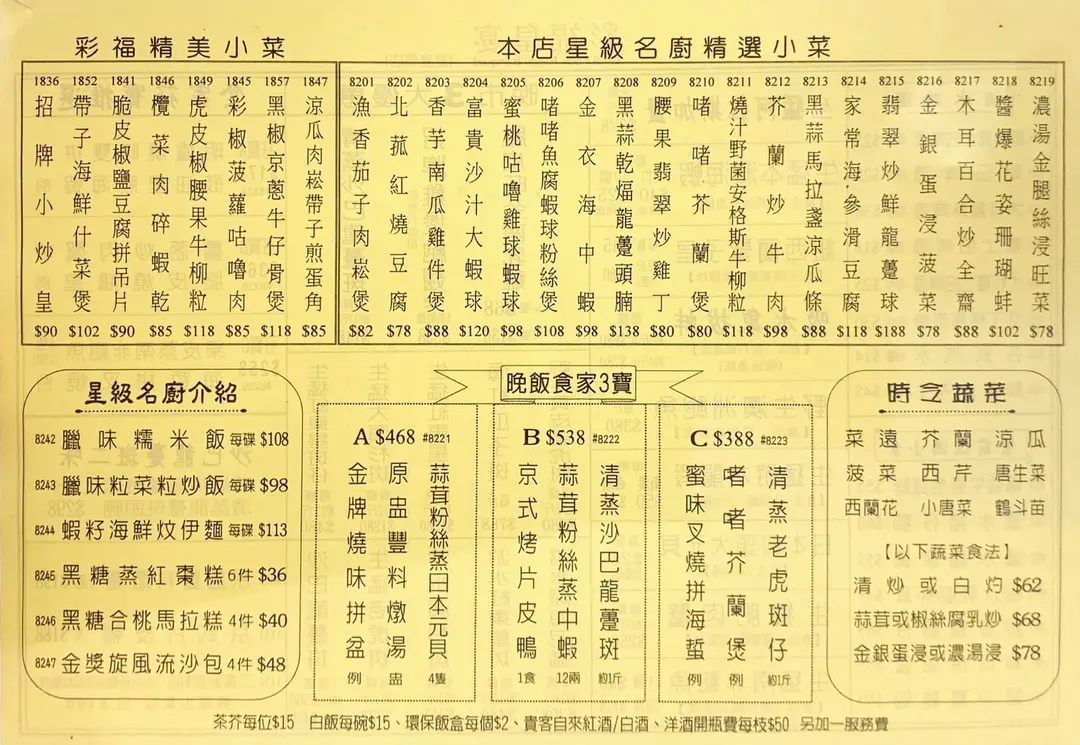 彩福精美小菜
1836 招牌小炒皇 $90
1852 帶子海鮮什菜煲 $102
1841 脆皮椒鹽豆腐拼吊片 $90
1846 欖菜肉碎蝦乾 $85
1849 虎皮椒腰果牛柳粒 $118
1845 彩椒菠蘿咕嚕肉 $85
1857 黑椒京蔥牛仔骨煲 $118
1847 涼瓜肉崧帶子煎蛋角 $85
本店星級名廚精選小菜
8201 漁香茄子肉崧煲 $82
8202 北菰紅燒豆腐 $78
8203 香芋南瓜雞件煲 $88
8204 富貴沙汁大蝦球 $120
8205 蜜桃咕嚕雞球蝦球 $98
8206 啫啫魚腐蝦球粉絲煲 $108
8207 金衣海中蝦 $98
8208 黑蒜乾煏龍躉頭腩 $138
8209 腰果翡翠炒雞丁 $80
8210 啫啫芥蘭煲 $80
8211 燒汁野菌安格斯牛柳粒 $118
8212 芥蘭炒牛肉 $98
8213 黑蒜馬拉盞涼瓜條 $88
8214 家常海參滑豆腐 $118
8215 翡翠炒鮮龍躉球 $188
8216 金銀蛋浸菠菜 $78
8217 木耳百合炒全齋 $88
8218 醬爆花姿珊瑚蚌 $102
8219 濃湯金腿絲浸旺菜 $78
星級名廚介紹
8242 臘味糯米飯 每碟 $108
8243 臘味粒菜粒炒飯 每碟 $98
8244 蝦籽海鮮炆伊麵 每碟 $113
8245 黑糖蒸紅棗糕 6件 $36
8246 黑糖合桃馬拉糕 4件 $40
8247 金獎旋風流沙包 4件 $48
晚飯食家3寶
A $468 #8221
金牌燒味拼盆 例
原盅豐料燉湯 盅
蒜茸粉絲蒸日本元貝 4隻
B $538 #8222
京式烤片皮鴨 1食
蒜茸粉絲蒸中蝦 12兩
清蒸沙巴龍躉斑 約1斤
C $388 #8223
蜜味叉燒拼海蜇 例
啫啫芥蘭煲 例
清蒸老虎斑仔 約1斤
時令蔬菜
菜遠 芥蘭 涼瓜
菠菜 西芹 唐生菜
西蘭花 小唐菜 鶴斗苗
【以下蔬菜食法】
清炒或白灼 $62
蒜茸或椒絲腐乳炒 $68
金銀蛋浸或濃湯浸 $78
茶芥每位$15 白飯每碗$15、環保飯盒每個$2、貴客自來紅酒/白酒、洋酒開瓶費每枝$50 另加一服務費